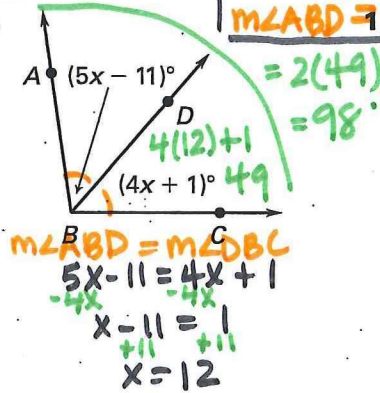 m∠ABD = 1
= 2(49)
= 98°
A
(5x − 11)°
D
4(12)+1
(4x + 1)° 49
B
C
m∠ABD = m∠DBC
5x-11 = 4x + 1
-4x -4x
x-11 = 1
+11 +11
x = 12